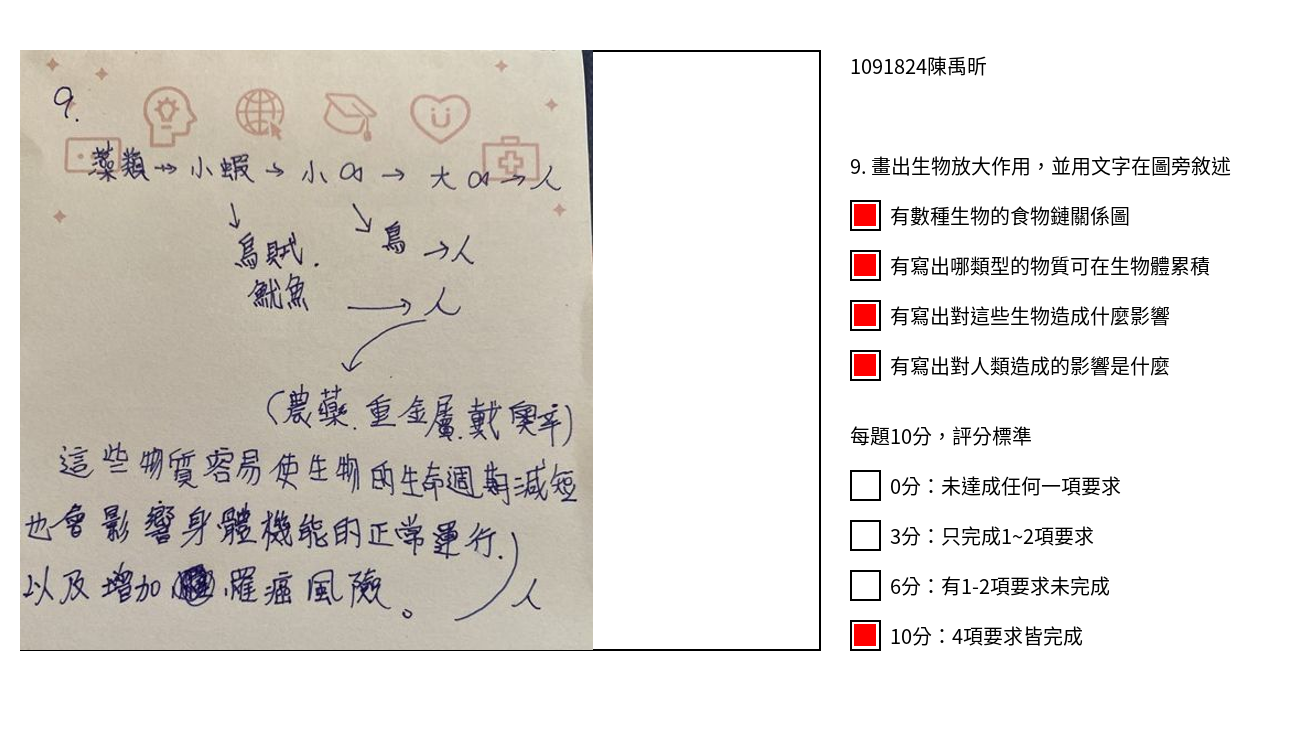 9.
藻類→小蝦→小→大→人
烏賊.
鳥→人
魷魚→人
(農藥.重金屬.戴奧辛)
這些物質容易使生物的生命週期減短
也會影響身體機能的正常運行.
以及增加罹癌風險。
人
1091824陳禹昕
9. 畫出生物放大作用，並用文字在圖旁敘述
有數種生物的食物鏈關係圖
有寫出哪類型的物質可在生物體累積
有寫出對這些生物造成什麼影響
有寫出對人類造成的影響是什麼
每題10分，評分標準
0分：未達成任何一項要求
3分：只完成1~2項要求
6分：有1-2項要求未完成
10分：4項要求皆完成